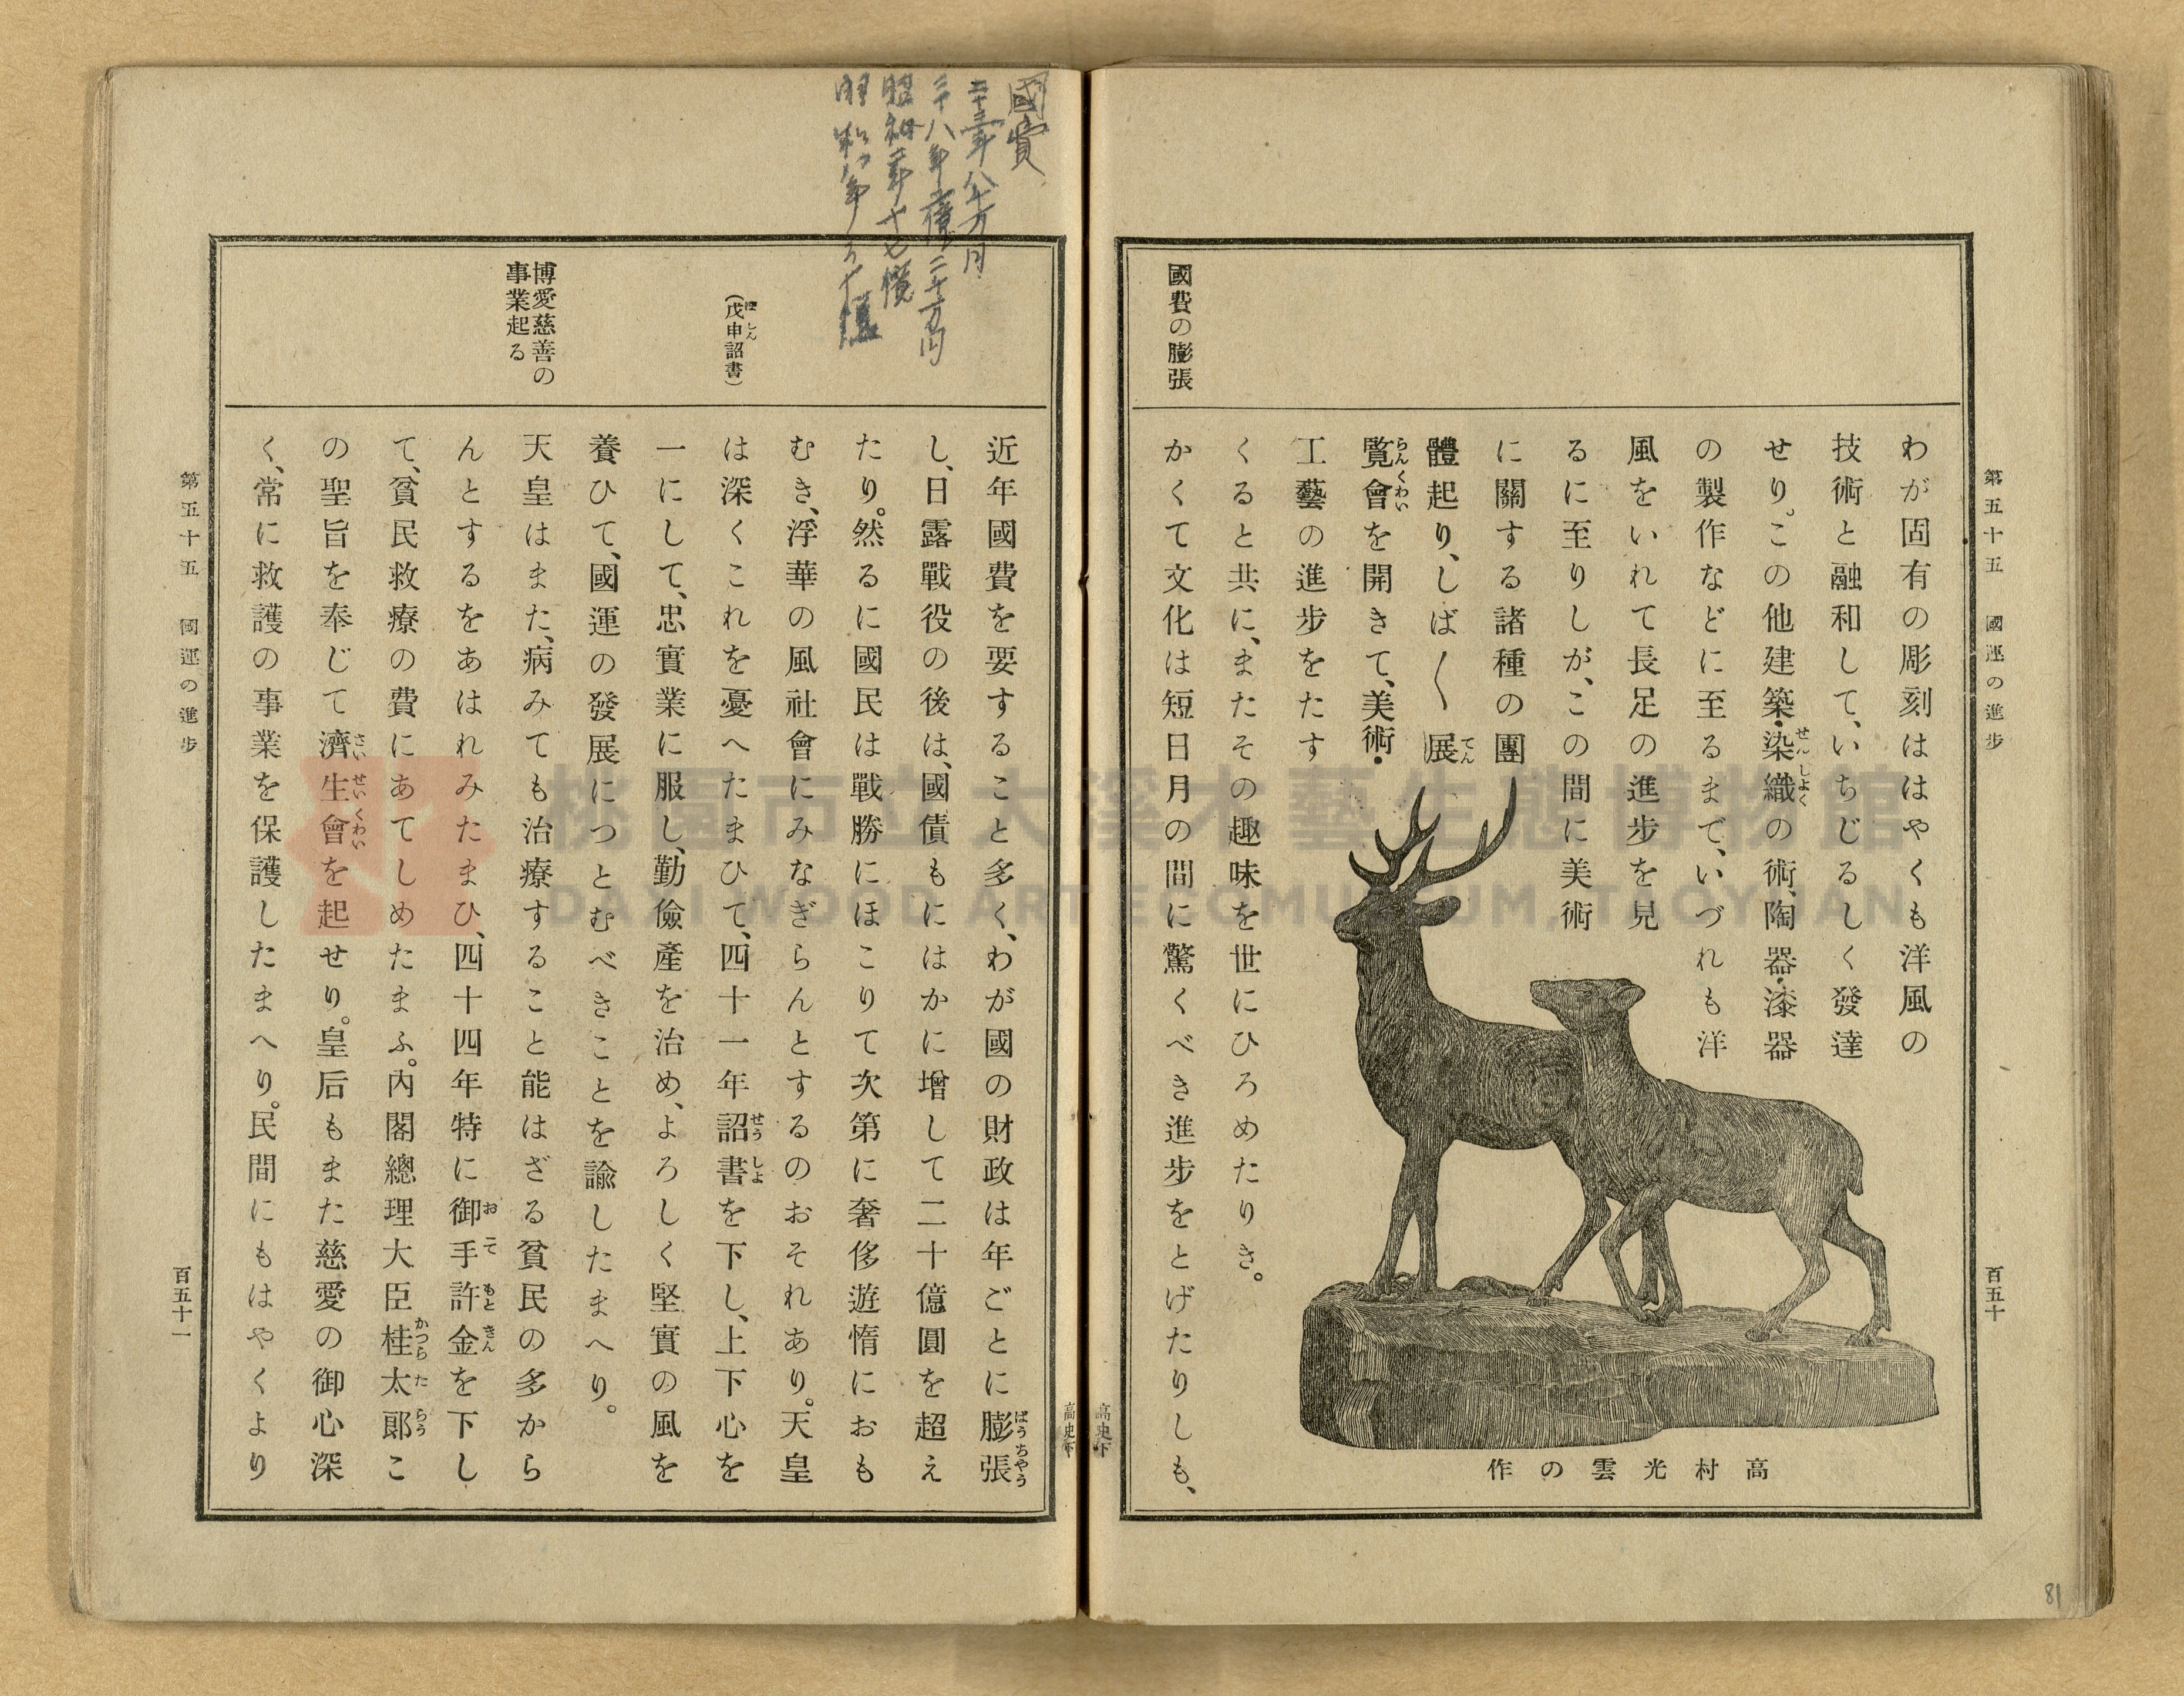 第五十五 國運の進步
百五十
わが固有の彫刻ははやくも洋風の
技術と融和して、いちじるしく發達
せり。この他建築・染織の術、陶器・漆器
の製作などに至るまで、いづれも洋
風をいれて長足の進步を見
るに至りしが、この間に美術
に關する諸種の團
體起り、しば〱展
覽會を開きて、美術・
工藝の進步をたす
くると共に、またその趣味を世にひろめたりき。
國費の膨張
かくて文化は短日月の間に驚くべき進步をとげたりしも、
高村光雲の作
高史下
81
國費
昭和二年十七億
高史下
近年國費を要すること多く、わが國の財政は年ごとに膨張
し、日露戰役の後は、國債もにはかに增して二十億圓を超え
たり。然るに國民は戰勝にほこりて次第に奢侈遊惰におも
むき、浮華の風社會にみなぎらんとするのおそれあり。天皇
(戊申詔書)
は深くこれを憂へたまひて、四十一年詔書を下し、上下心を
一にして、忠實業に服し、勤儉產を治め、よろしく堅實の風を
養ひて、國運の發展につとむべきことを諭したまへり。
博愛慈善の
事業起る
天皇はまた、病みても治療すること能はざる貧民の多から
んとするをあはれみたまひ、四十四年特に御手許金を下し
て、貧民救療の費にあてしめたまふ。內閣總理大臣桂太郞こ
の聖旨を奉じて濟生會を起せり。皇后もまた慈愛の御心深
く、常に救護の事業を保護したまへり。民間にもはやくより
第五十五 國運の進步
百五十一
桃園市立大溪木藝生態博物館
DAXI WOOD ART ECOMUSEUM, TAOYUAN